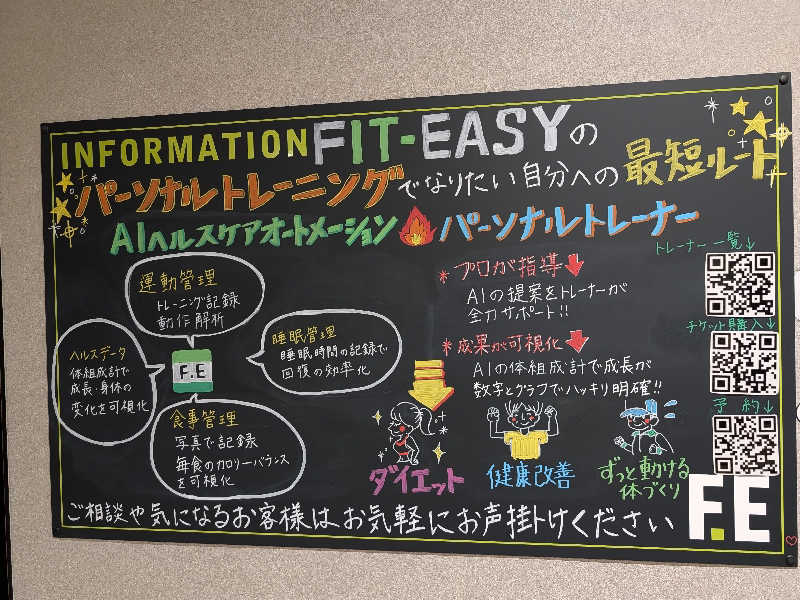 INFORMATION FIT-EASYの
パーソナルトレーニングでなりたい自分への最短ルート
AIヘルスケアオートメーション パーソナルトレーナー
運動管理
トレーニング記録
動作解析
ヘルスデータ
体組成計で
成長・身体の
変化を可視化
F.E
睡眠管理
睡眠時間の記録で
回復の効率化
食事管理
写真で記録
毎食のカロリーバランス
を可視化
*プロが指導
AIの提案をトレーナーが
全力サポート!!
*成果が可視化
AIの体組成計で成長が
数字とグラフでハッキリ明確!!
ダイエット
健康改善
ずっと動ける
体づくり
トレーナー一覧↓
チケット購入↓
予約↓
F.E
ご相談や気になるお客様はお気軽にお声掛けください